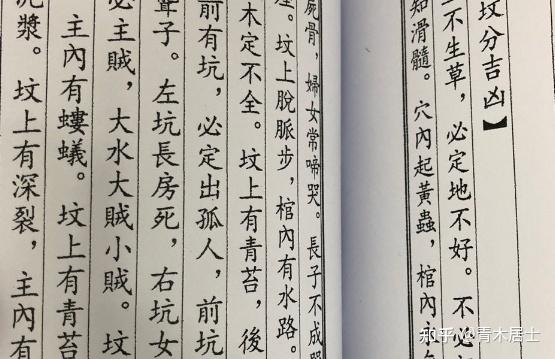 坟分吉凶】
不生草，必定地不好。不必
知滑髓。穴內起黃蟲，棺內
屍骨，婦女常啼哭。長子不成
坟上脫脈步，棺內有水路。
木定不全。坟上有青苔，後
前有坑，必定出孤人，前坑
聾子。左坑長房死，右坑女
必主賊，大水大賊小賊。坟
主內有螻蟻。坟上有青苔
泥漿。坟上有深裂，主內有
知乎 @青木居士